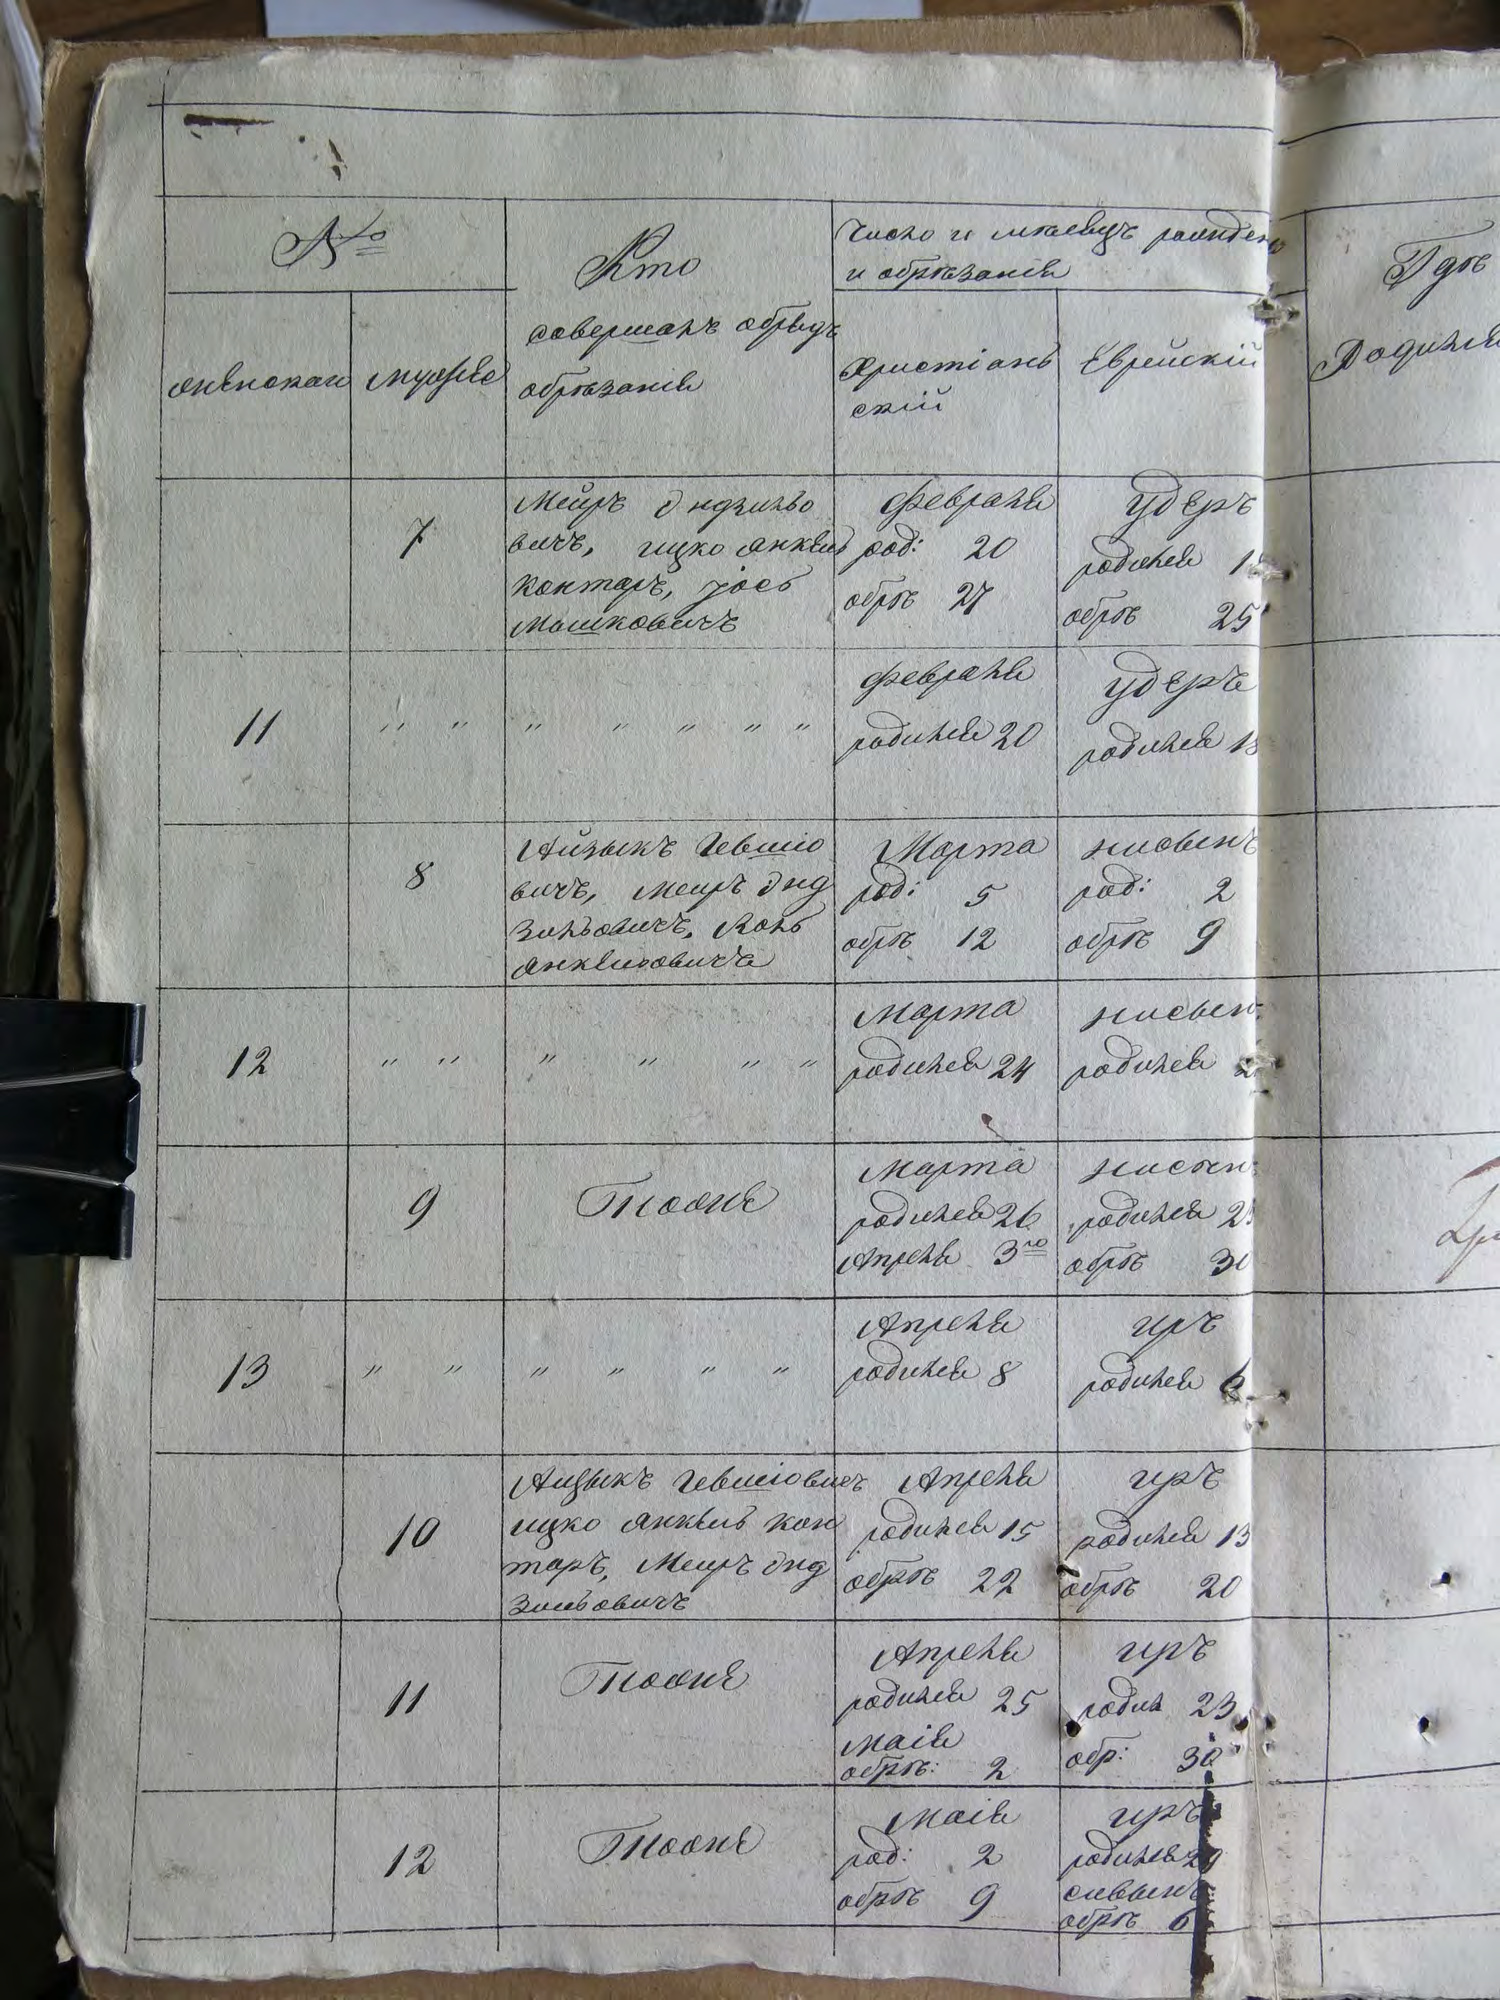 №
Кто
Число и месецъ рожден
и обрѣзанія
Гдѣ
женскаго
мужеск
совершалъ обрядъ
обрѣзанія
Христіань
скій
Еврейскій
Родился
7
Мейръ
вичъ, ицко янкель
контаръ, іось
Мошковичъ
Февраля
род: 20
обрѣ 27
удеръ
родился
обрѣ 25
11
" " " " " " "
Февраля
родился 20
удеръ
родился 18
8
Айзыкъ Гевшіо
вичъ, Меиръ Энд
зильовичъ,
янкелювичъ
Марта
род: 5
обрѣ 12
нисынъ
род: 2
обрѣ 9
12
" " " " " "
Марта
родился 24
нисын
родился
9
Тоже
Марта
родился 26
Апреля 3го
нисын
родился
обрѣ 30
13
" " " " " "
Апреля
родился 8
иръ
родился 6
10
Аизыкъ Гевшіовичъ
ицко янкель кон
таръ, Меиръ Энд
зильовичъ
Апреля
родился 15
обрѣ 22
иръ
родился 13
обрѣ 20
11
Тоже
Апреля
родился 25
Маія
обрѣ: 2
иръ
родил 23
обр: 30
12
Тоже
Маія
род: 2
обрѣ 9
иръ
родился 29
сивынъ
обрѣ 6